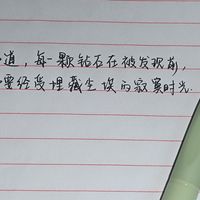 道，每一颗钻石在被发现前，
要经受埋藏尘埃的寂寞时光.